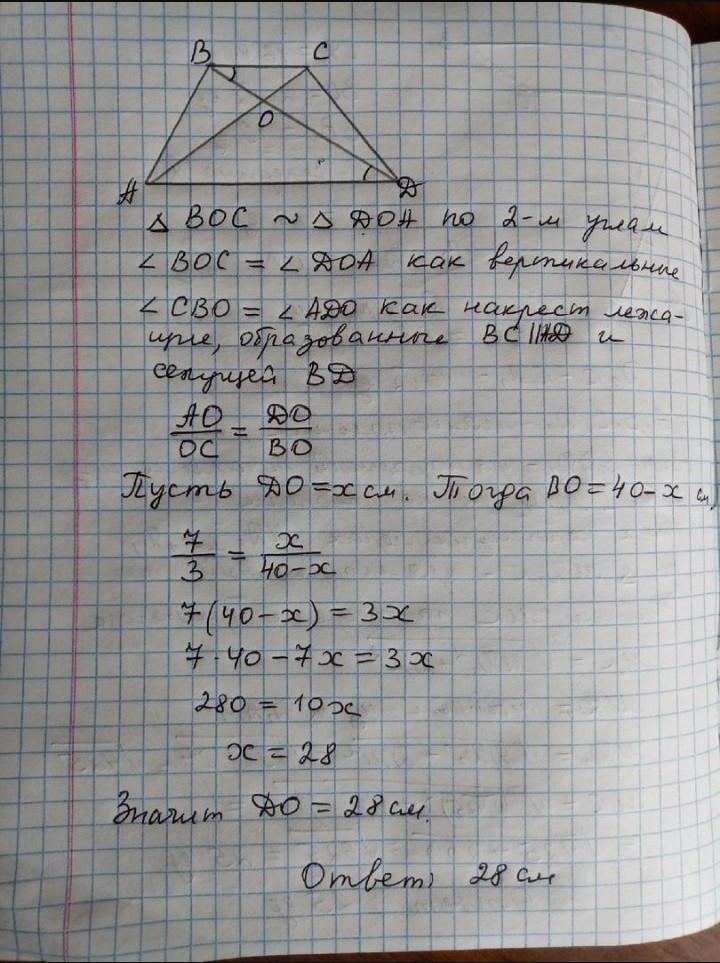 B C
O
A D
△ BOC ~ △ DOA по 2-м углам
∠ BOC = ∠ DOA как вертикальные
∠ CBO = ∠ ADO как накрест лежа-
щие, образованные BC || AD и
секущей BD
AO/OC = DO/BO
Пусть DO = x см. Тогда BO = 40 - x см,
7/3 = x/40-x
7(40-x) = 3x
7·40-7x = 3x
280 = 10x
x = 28
Значит DO = 28 см.
Ответ: 28 см